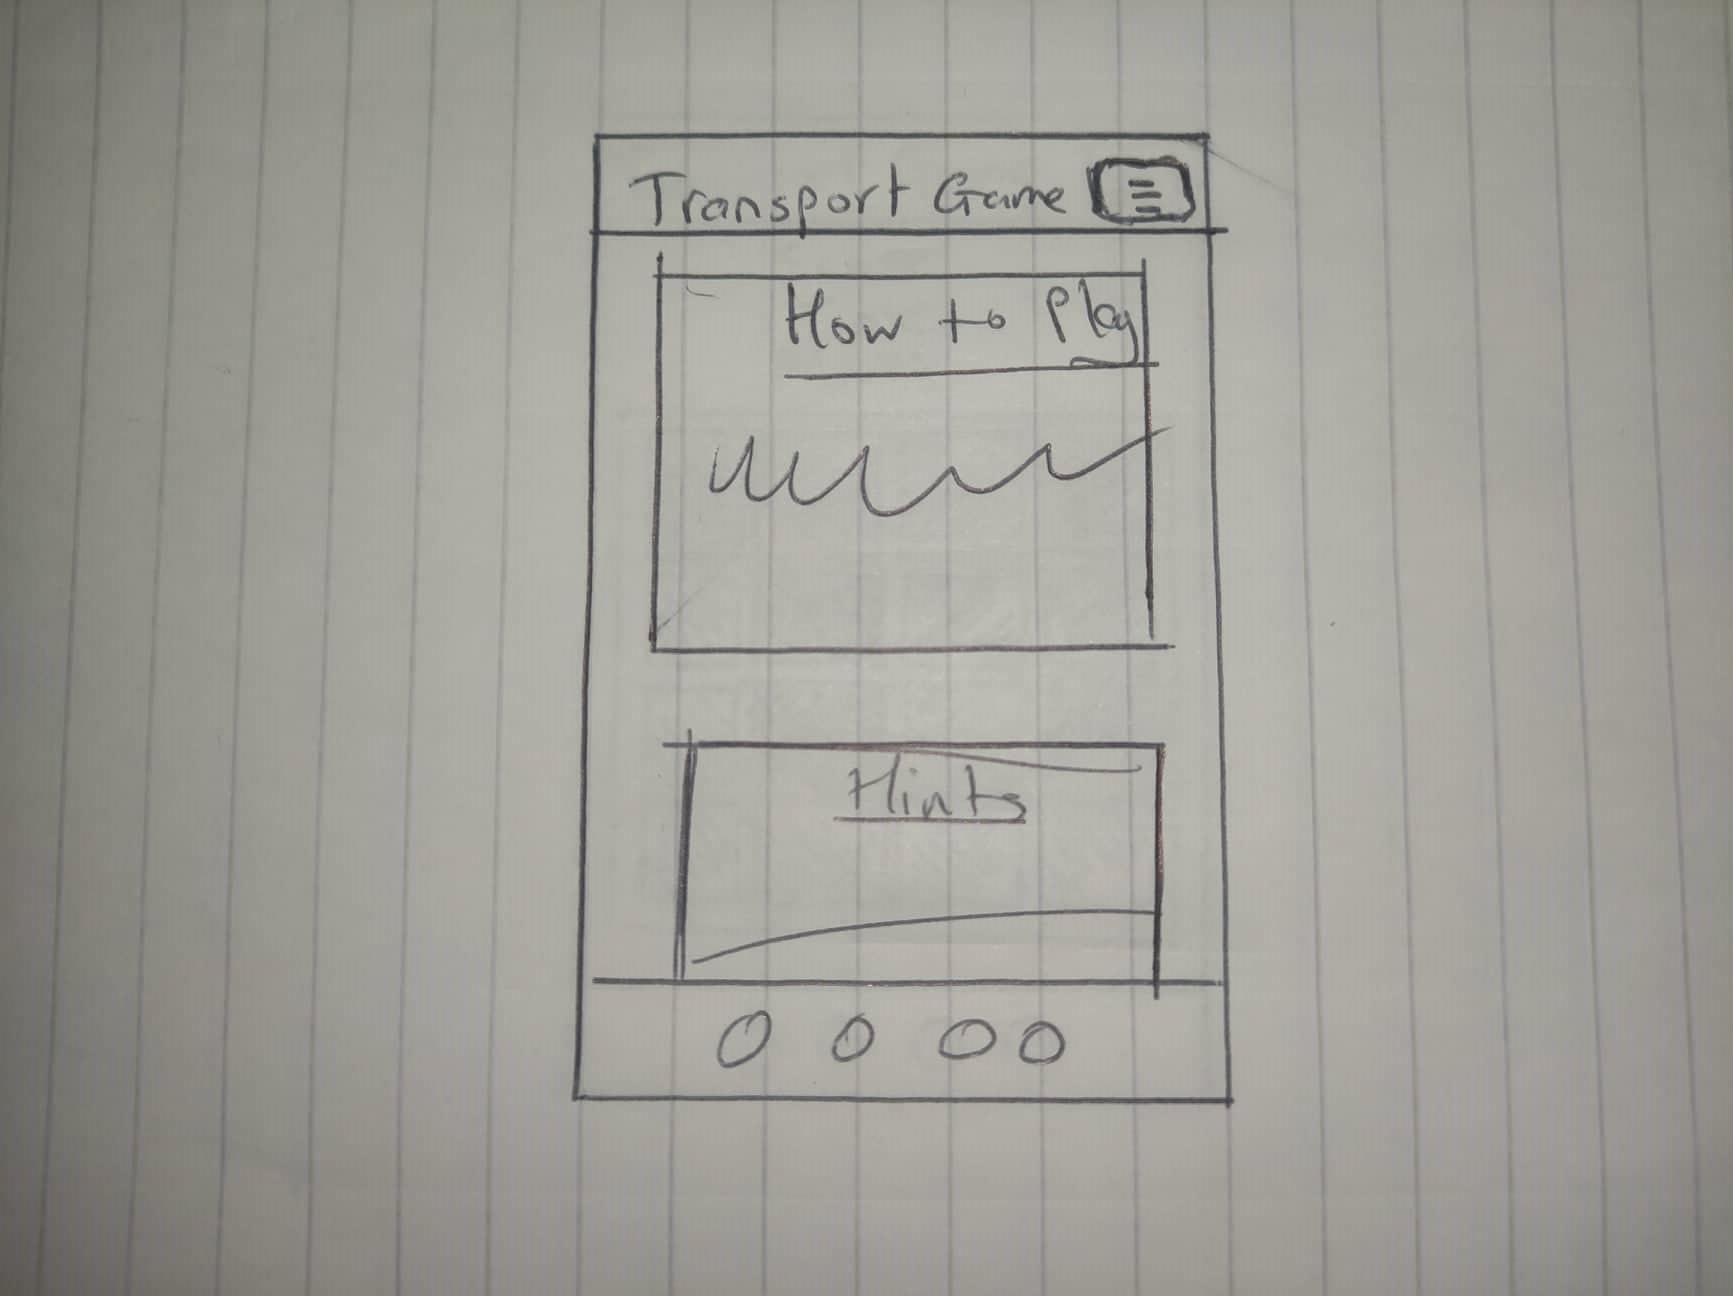 Transport Game
How to Play
Hints